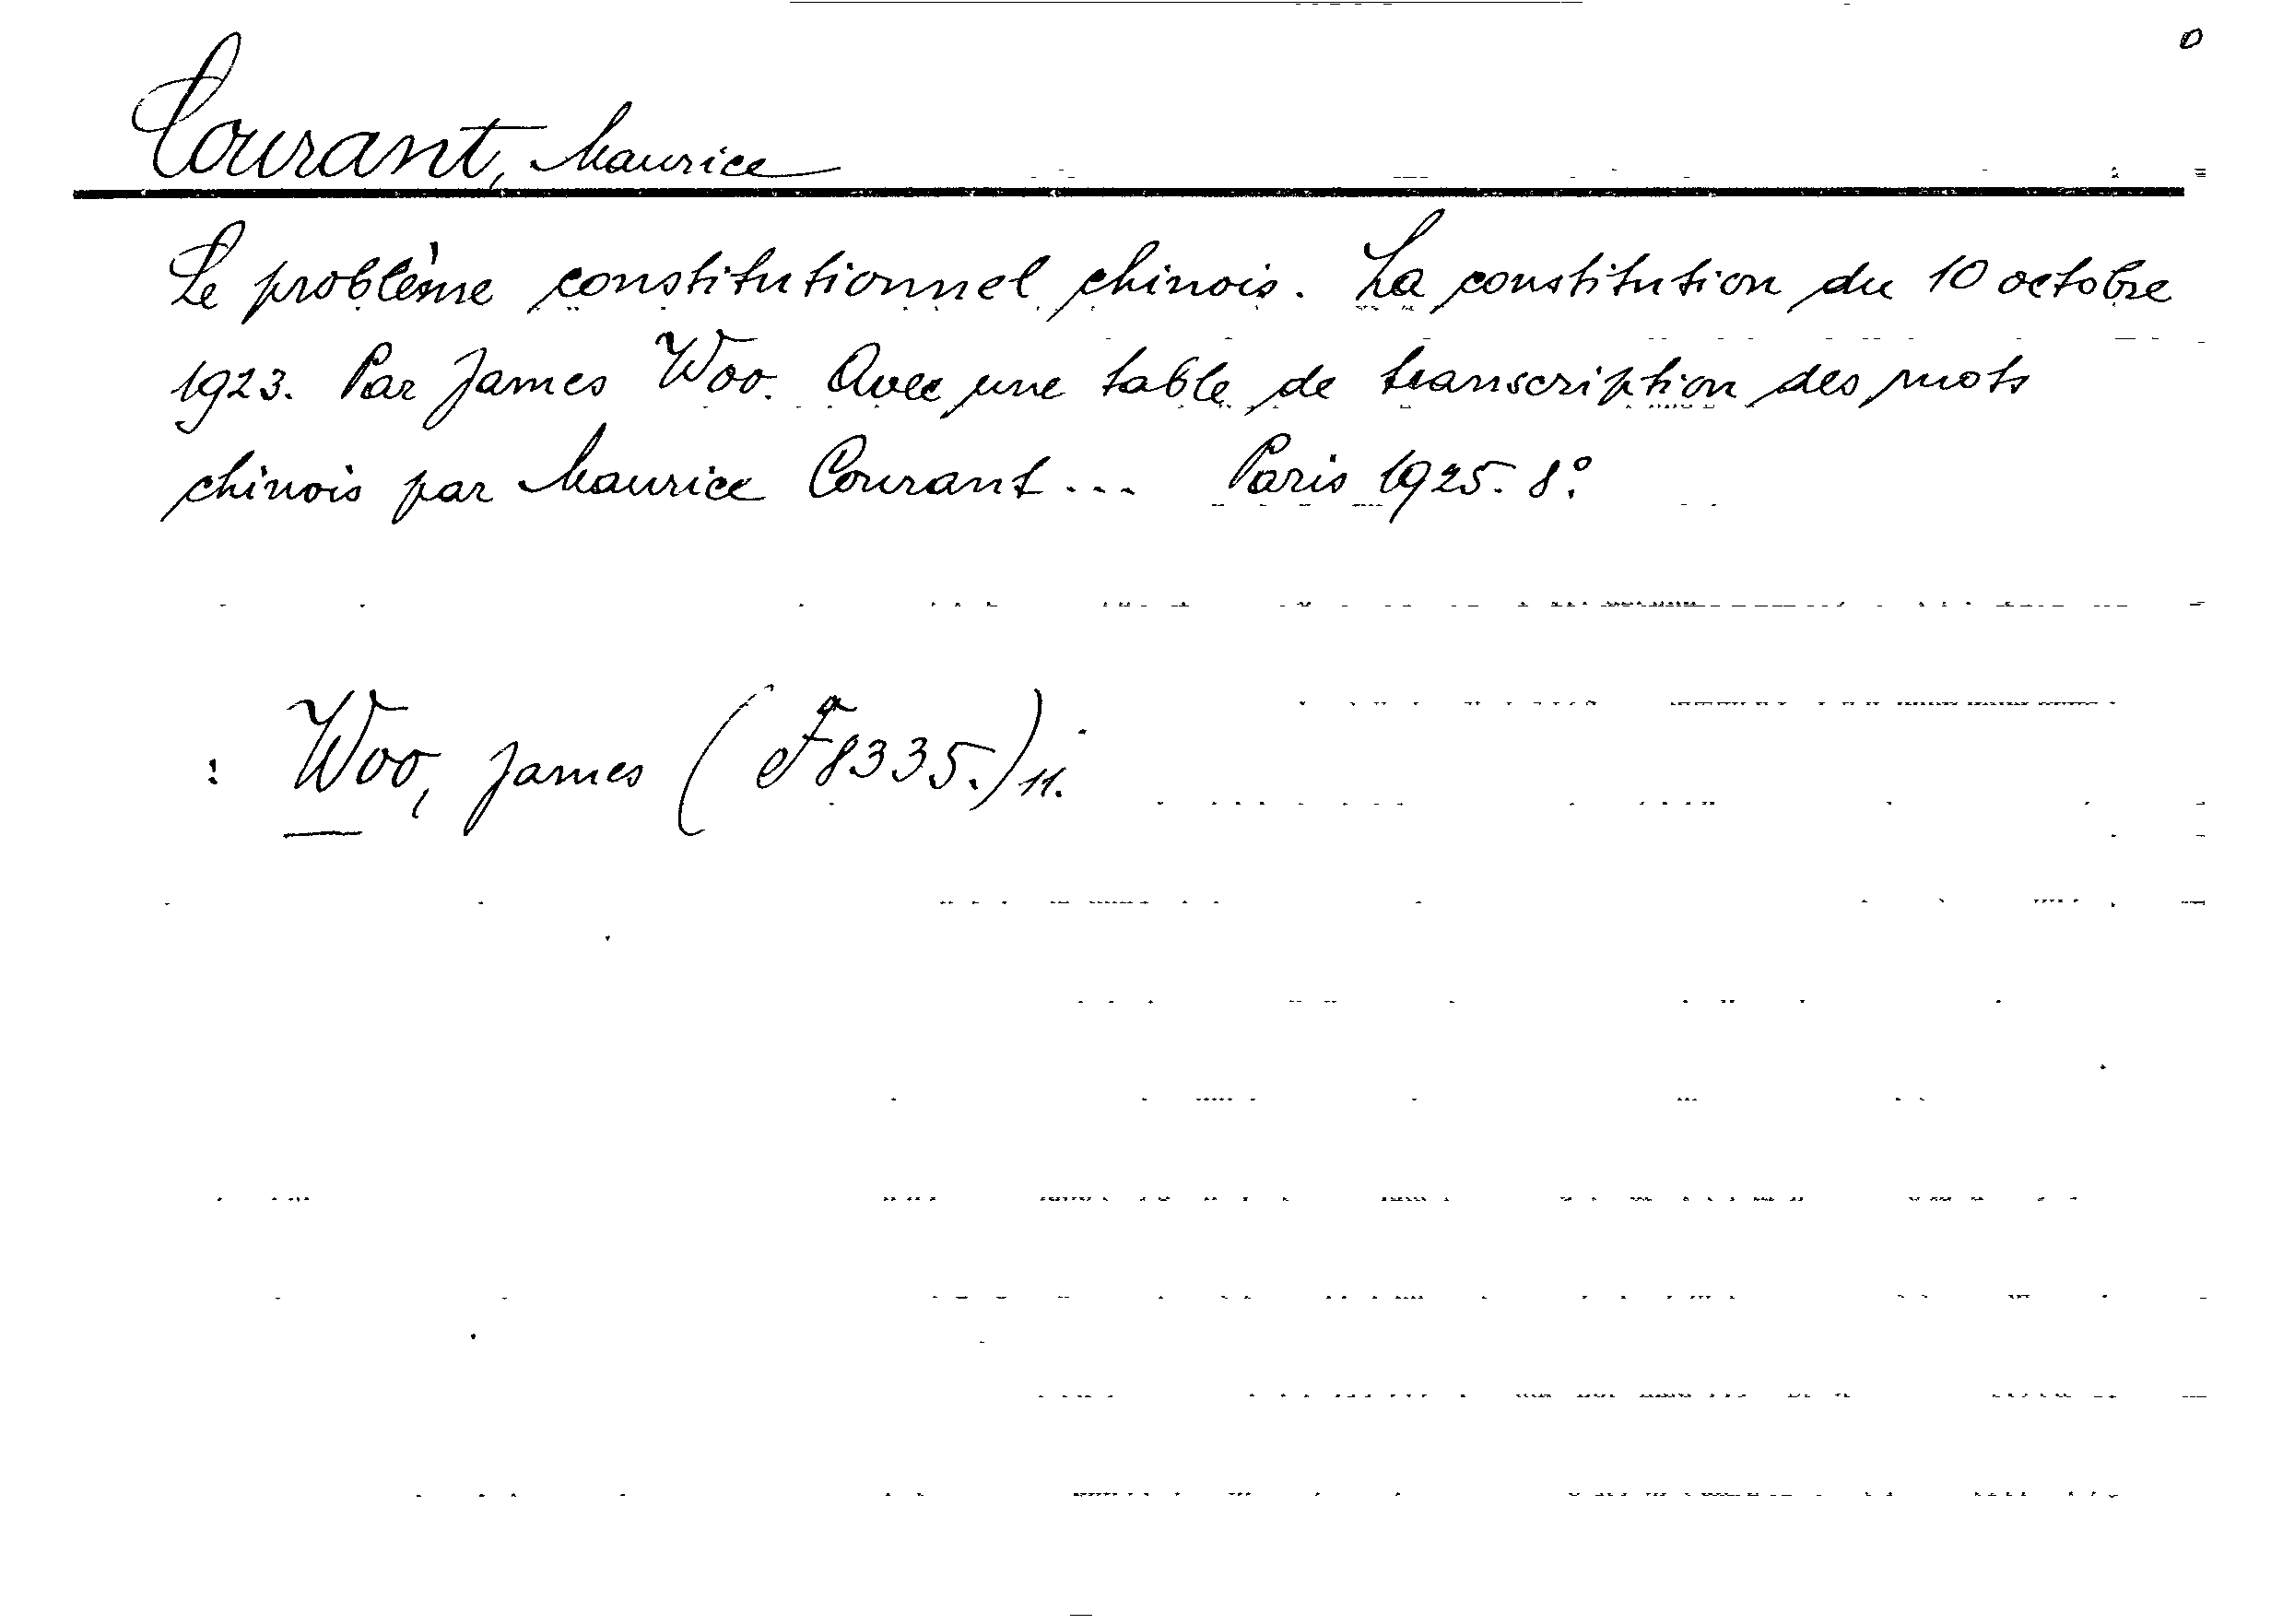 Courant, Maurice
Le problème constitutionnel chinois. La constitution du 10 octobre
1923. Par James Woo. Avec une table de transcription des mots
chinois par Maurice Courant... Paris 1925. 8°.
: Woo, James ( F 8335.) 11.